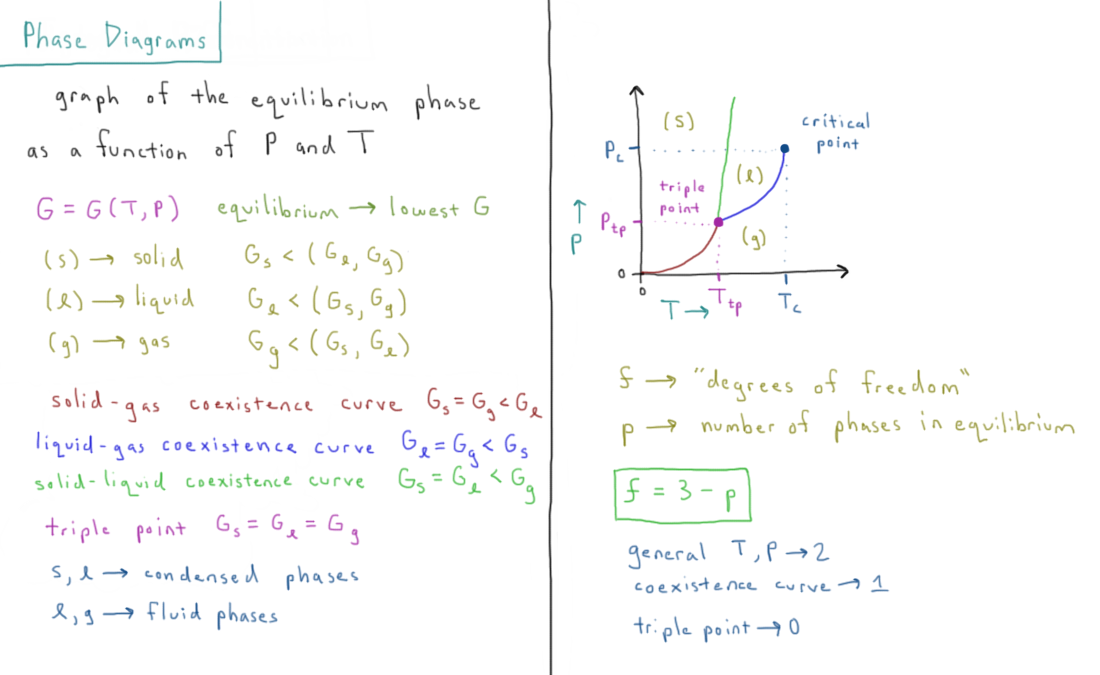 Phase Diagrams
graph of the equilibrium phase
as a function of P and T
G = G(T,P) equilibrium → lowest G
(s) → solid Gs < (Gℓ, Gg)
(ℓ) → liquid Gℓ < (Gs, Gg)
(g) → gas Gg < (Gs, Gℓ)
solid-gas coexistence curve Gs = Gg < Gℓ
liquid-gas coexistence curve Gℓ = Gg < Gs
solid-liquid coexistence curve Gs = Gℓ < Gg
triple point Gs = Gℓ = Gg
s, ℓ → condensed phases
ℓ, g → fluid phases
(s)
critical
point
Pc
(ℓ)
triple
point
↑
P
Ptp
(g)
0
0
T →
Ttp
Tc
f → "degrees of freedom"
p → number of phases in equilibrium
f = 3 - p
general T, P → 2
coexistence curve → 1
triple point → 0